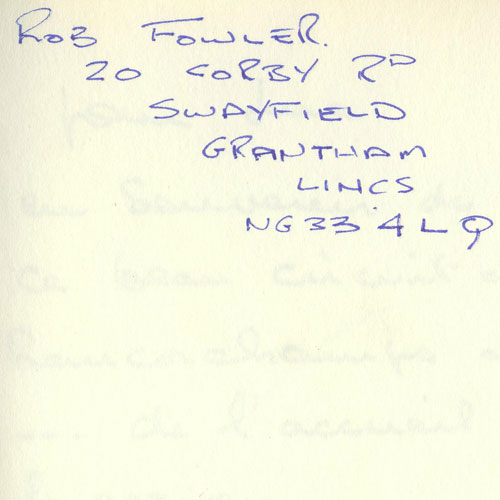 ROB FOWLER.
20 CORBY RD
SWAYFIELD
GRANTHAM
LINCS
NG33 4LQ